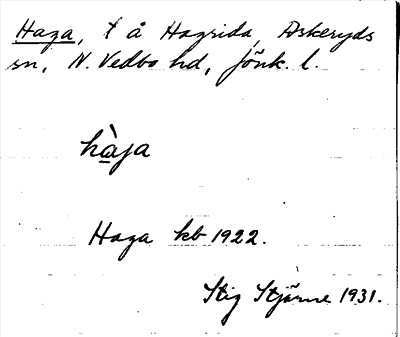 Haga, t å Hagrida, Askeryds
sn, N. Vedbo hd, Jönk. l.
hàja
Haga kb 1922.
Stig Stjärne 1931.